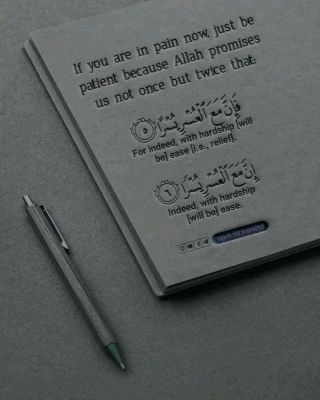 If you are in pain now, just be
patient because Allah promises
us not once but twice that:
فَإِنَّ مَعَ ٱلْعُسْرِ يُسْرًا ٥
For indeed, with hardship [will
be] ease [i.e., relief].
إِنَّ مَعَ ٱلْعُسْرِ يُسْرًا ٦
Indeed, with hardship
[will be] ease.
islam for mankind